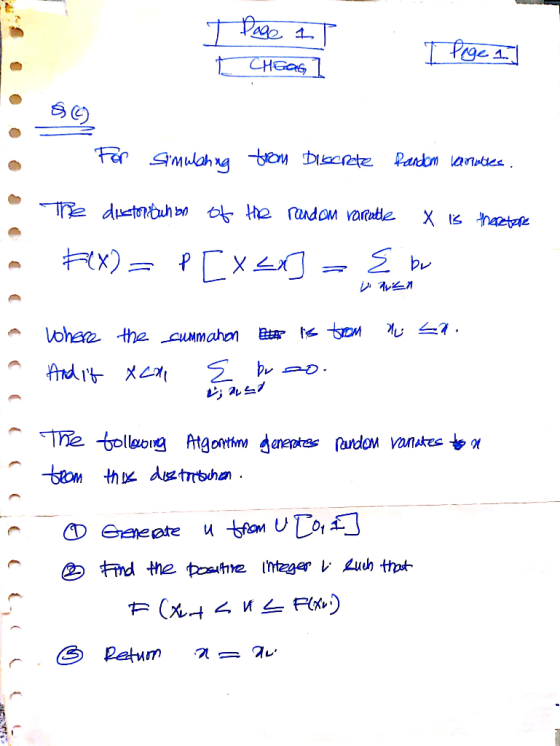 Page 1
Page 1
CHEGG
Q (C)
For Simulating from Discrete Random variables.
The distribution of the random variable X is therefore
F(X) = P [X ≤ x] = Σ pᵢ
i: xᵢ ≤ x
Where the summation is from xᵢ ≤ x.
And if x < x₁ Σ pᵢ = 0.
i; xᵢ ≤ x
The following Algorithm generates random variates x
from this distribution.
① Generate u from U [0, 1]
② Find the positive integer i such that
F (xᵢ₋₁ < u ≤ F(xᵢ)
③ Return x = xᵢ